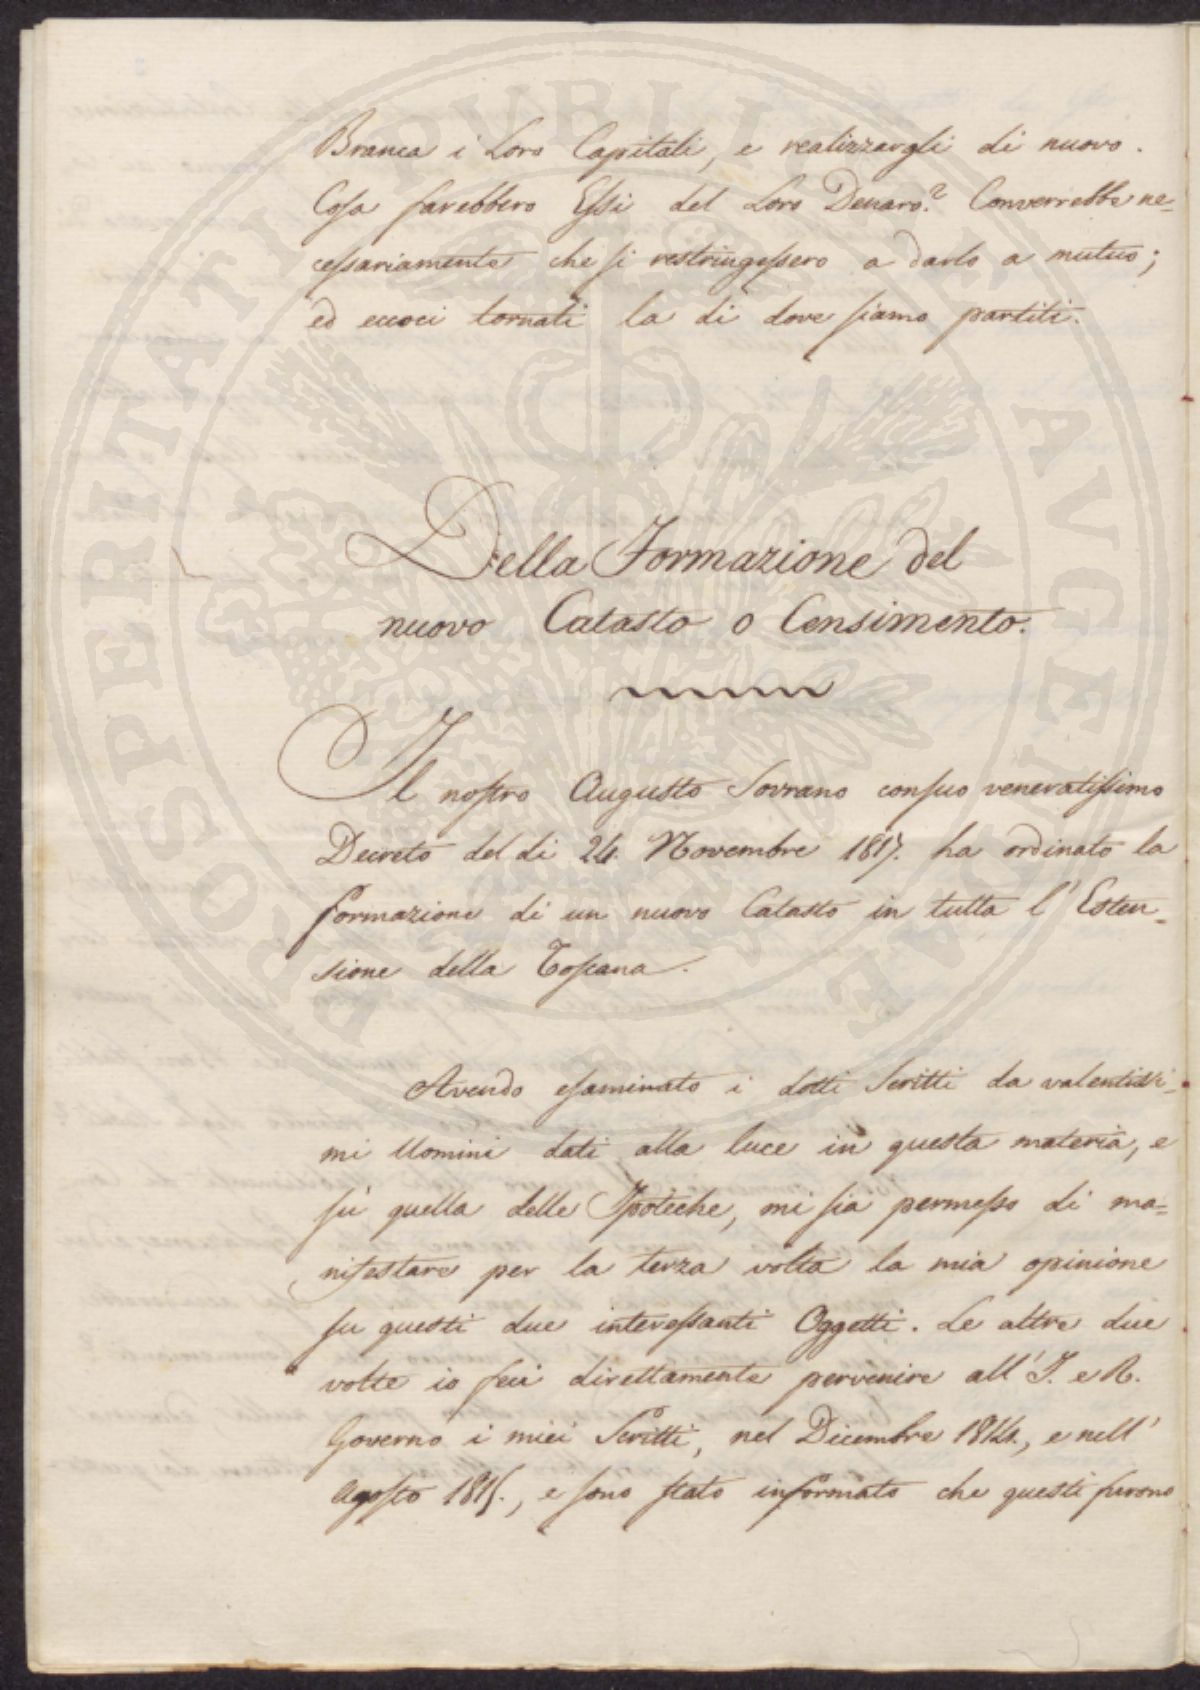 Branca i Loro Capitali, e realizzargli di nuovo.
Cosa farebbero Essi del Loro Denaro? Converrebbe ne=
cessariamente che si restringessero a darlo a mutuo;
ed eccoci tornati la di dove siamo partiti.
Della Formazione del
nuovo Catasto o Censimento.
Il nostro Augusto Sovrano con suo veneratissimo
Decreto del di 24. Novembre 1817. ha ordinato la
formazione di un nuovo Catasto in tutta l'Esten=
sione della Toscana.
Avendo esaminato i dotti Scritti da valentissi=
mi Uomini dati alla luce in questa materia, e
sù quella delle Ipoteche, mi sia permesso di ma=
nifestare per la terza volta la mia opinione
su questi due interessanti Oggetti. Le altre due
volte io feci direttamente pervenire all'I. e R.
Governo i miei Scritti, nel Dicembre 1814., e nell'
Agosto 1815., e sono stato informato che questi furono
PROSPERITATI PUBLICAE AUGENDAE